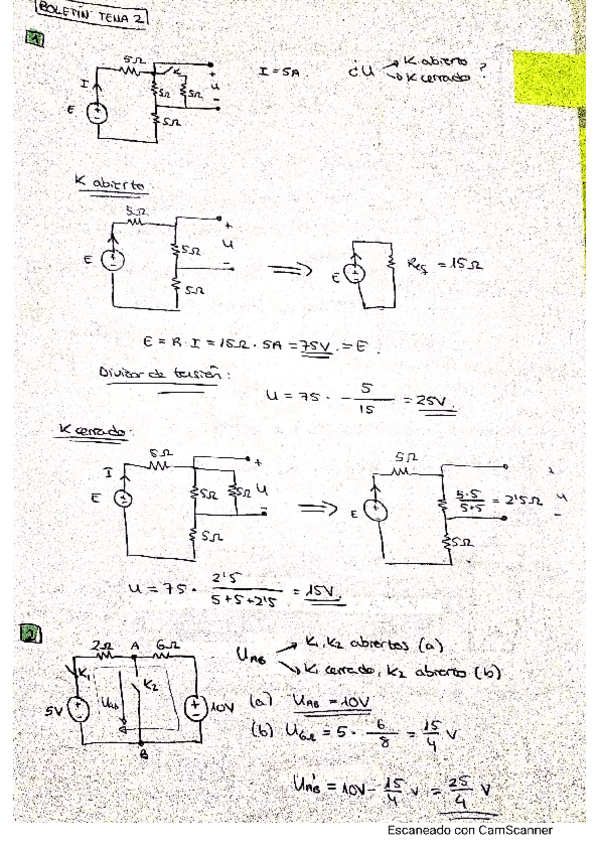 BOLETÍN TEMA 2
1
5Ω
K
I = 5A.
¿U
K abierto
K cerrado
?
I
E
5Ω
5Ω
+
U
-
5Ω
K abierto
5Ω
E
5Ω
+
U
-
5Ω
E
Req = 15Ω
E = R · I = 15Ω · 5A = 75V. = E.
Divisor de tensión:
U = 75 · - 5/15 = 25V.
K cerrado:
5Ω
I
E
5Ω
5Ω
+
U
-
5Ω
5Ω
E
5·5/5+5 = 2'5Ω
U
-
5Ω
U = 75 · 2'5/5+5+2'5 = 15V.
2
2Ω
A
6Ω
K1
K2
5V
UAB
10V
B
UAB
K1, K2 abiertos (a)
K1 cerrado, K2 abierto (b)
(a) UAB = 10V
(b) U6Ω = 5 · 6/8 = 15/4 V
UAB = 10V - 15/4 V = 25/4 V
Escaneado con CamScanner